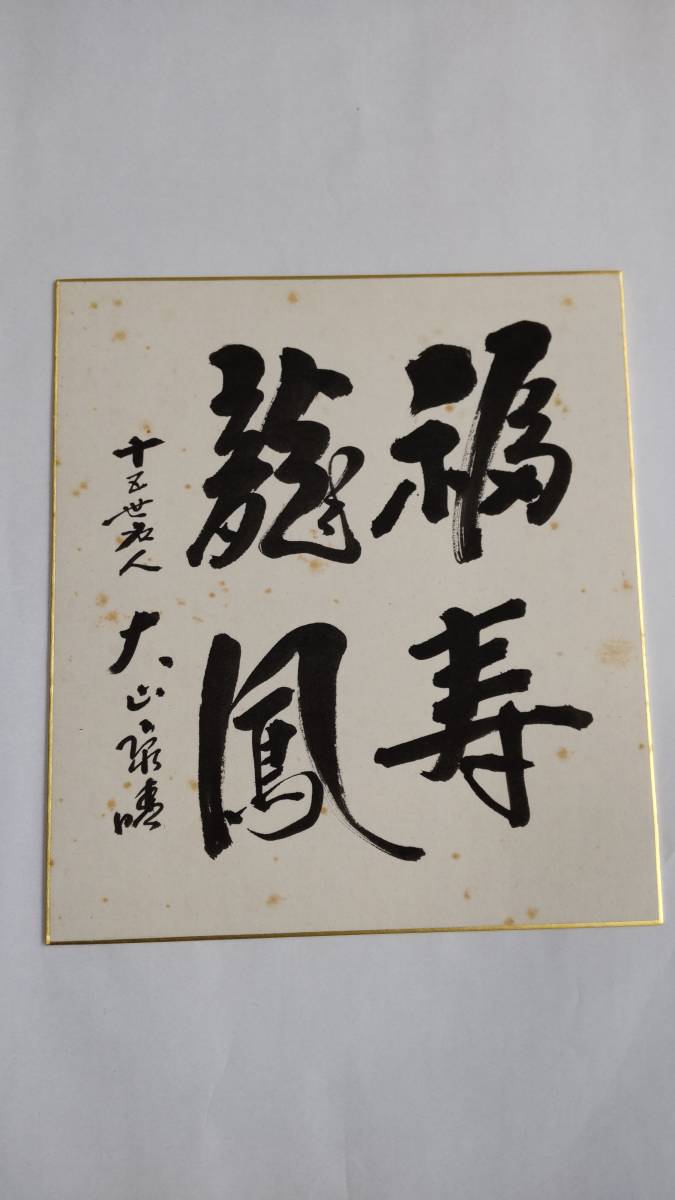 福寿
龍鳳
十五世名人
大山康晴